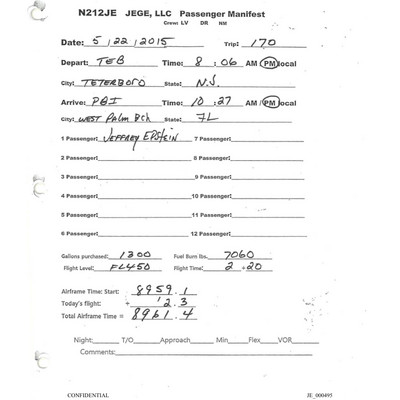 N212JE JEGE, LLC Passenger Manifest
Crew: LV DR NM
Date: 5/22/2015 Trip: 170
Depart: TEB Time: 8 : 06 AM / PM local
City: TETERBORO State: N.J.
Arrive: PBI Time: 10 : 27 AM / PM local
City: WEST PALM BCH State: FL
1 Passenger: JEFFREY EPSTEIN 7 Passenger:
2 Passenger: 8 Passenger:
3 Passenger: 9 Passenger:
4 Passenger: 10 Passenger:
5 Passenger: 11 Passenger:
6 Passenger: 12 Passenger:
Gallons purchased: 1300 Fuel Burn lbs. 7060
Flight Level: FL450 Flight Time: 2 : 20
Airframe Time: Start: 8959.1
Today's flight: + 2.3
Total Airframe Time = 8961.4
Night: T/O Approach Min Flex VOR
Comments:
CONFIDENTIAL JE_000495